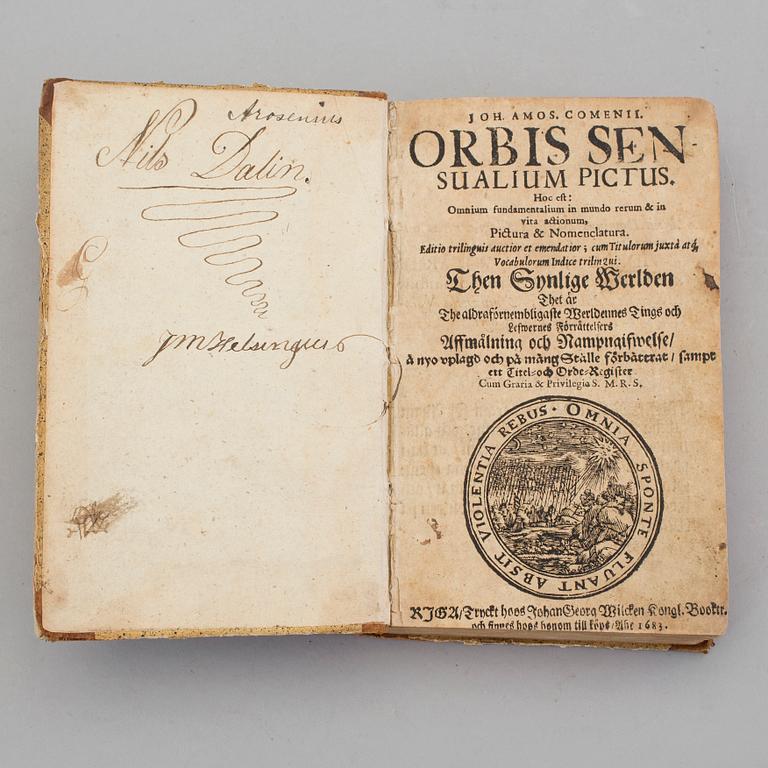 Arosenius
Nils Dalin.
JM Helsingius
JOH. AMOS. COMENII.
ORBIS SEN
SUALIUM PICTUS.
Hoc est:
Omnium fundamentalium in mundo rerum & in
vita actionum,
Pictura & Nomenclatura.
Editio trilinguis auctior et emendatior; cum Titulorum juxtà atq́,
Vocabulorum Indice trilingui.
Then Synlige Werlden
Thet är
The aldraförnembligaste Werldennes Tings och
Lefwernes Förrättelsers
Affmålning och Nampngifwelse/
å nyo vplagd och på mång Ställe förbättrat/ sampt
ett Titel- och Orde-Register
Cum Gratia & Privilegio S. M. R. S.
OMNIA SPONTE FLUANT ABSIT VIOLENTIA REBUS ·
RIGA/ Tryckt hoos Johan Georg Wilcken Kongl. Booktr.
och finnes hoos honom till köps/ Åhr 1683.